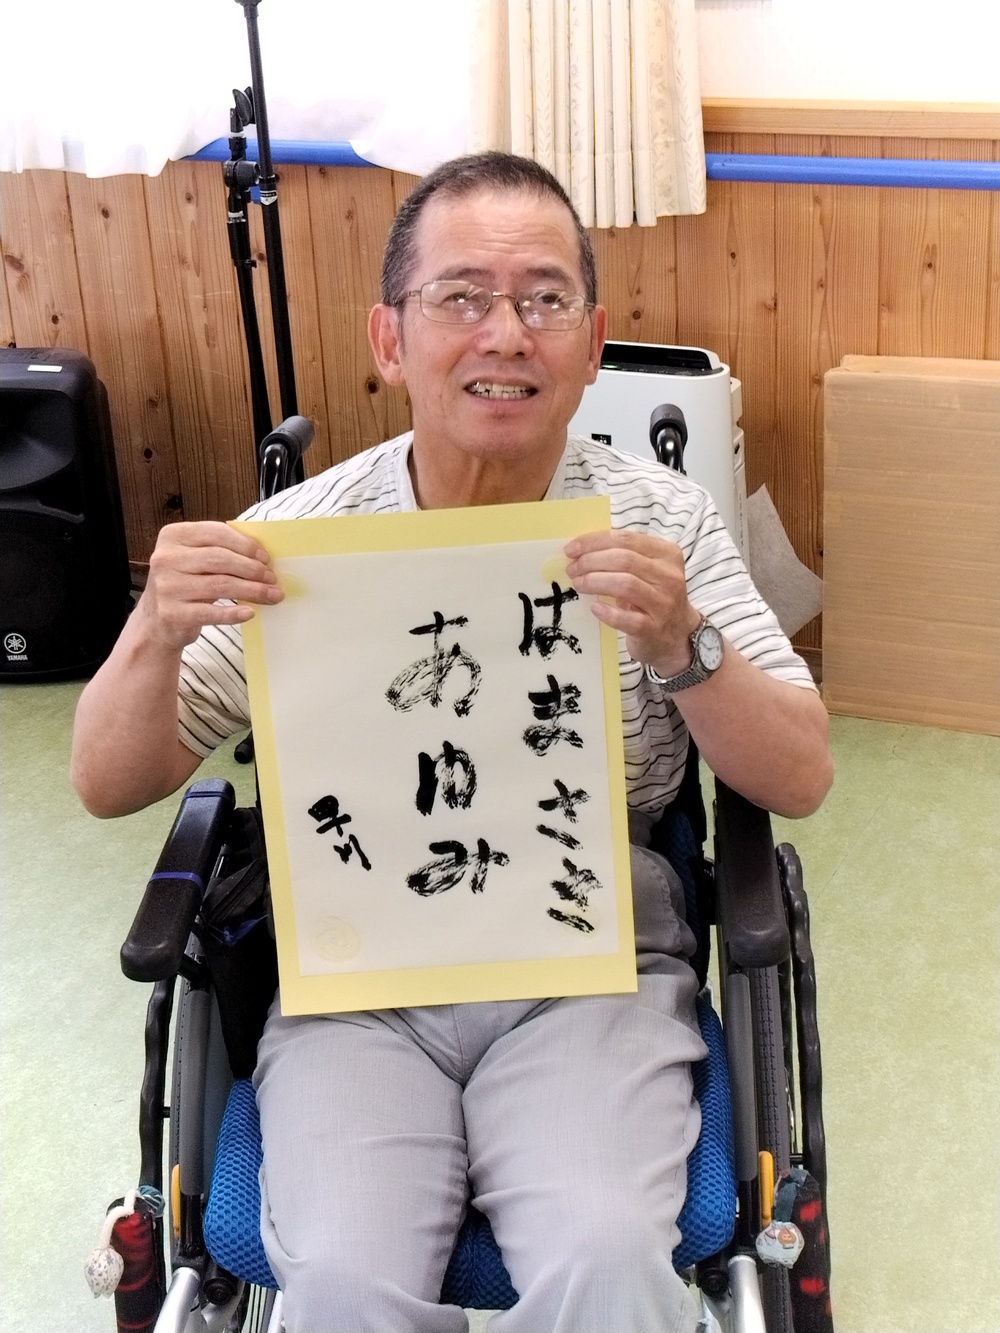 はまさき
あゆみ
早川
YAMAHA